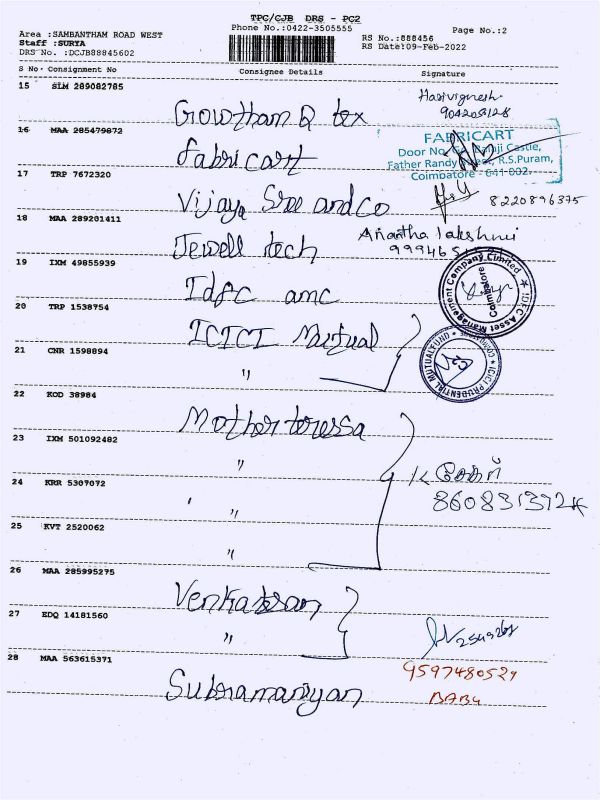 TPC/CJB DRS - PC2
Phone No.:0422-3505555
Page No.:2
Area :SAMBANTHAM ROAD WEST
RS No.:888456
Staff :SURYA
RS Date:09-Feb-2022
DRS No. :DCJB88845602
S No Consignment No Consignee Details Signature
15 SLM 289082785
Gowtham Q tex
Harivignesh
16 MAA 285479872
Fabricart
FABRICART
Father Randy Street, R.S.Puram,
Coimbatore - 641 002.
17 TRP 7672320
Vijaya Sree and Co
8220896375
18 MAA 289201411
Jewell tech
Anantha lakshmi
19 IXM 49855939
Idfc amc
IDFC Asset Management Company Limited
Coimbatore
20 TRP 1538754
ICICI Mutual
21 CNR 1598894
"
ICICI PRUDENTIAL MUTUAL FUND
22 KOD 38984
Mother teressa
23 IXM 501092482
"
24 KRR 5307072
"
25 KVT 2520062
"
26 MAA 285995275
Venkatesan
27 EDQ 14181560
"
28 MAA 563615371
Subramaniyan
9597480527
BABU